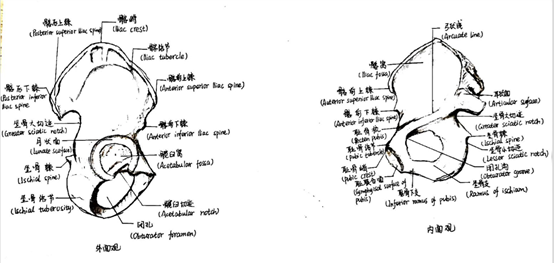 髂后上棘
(Posterior superior iliac spine)
髂嵴
(Iliac crest)
髂结节
(Iliac tubercle)
髂前上棘
(Anterior superior iliac spine)
髂后下棘
(Posterior inferior iliac spine
坐骨大切迹
(Greater sciatic notch)
月状面
(Lunate surface)
坐骨棘
(Ischial spine)
坐骨结节
(Ischial tuberosity)
髂前下棘
(Anterior inferior iliac spine)
髋臼窝
(Acetabular fossa)
髋臼切迹
(Acetabular notch)
闭孔
(Obturator foramen)
外面观
弓状线
(Arcuate line)
髂窝
(Iliac fossa)
髂前上棘
(Anterior superior iliac spine)
髂前下棘
(Anterior inferior iliac spine)
耻骨梳
(Pecten pubis)
耻骨结节
(Pubic tubercle)
耻骨嵴
(Pubic crest)
耻骨联合面
(Symphysial surface of pubis)
耻骨下支
(Inferior ramus of pubis)
耳状面
(Articular surface)
坐骨大切迹
(Greater sciatic notch)
坐骨棘
(Ischial spine)
坐骨小切迹
(Lesser sciatic notch)
闭孔沟
(Obturator groove)
坐骨支
(Ramus of ischium)
内面观